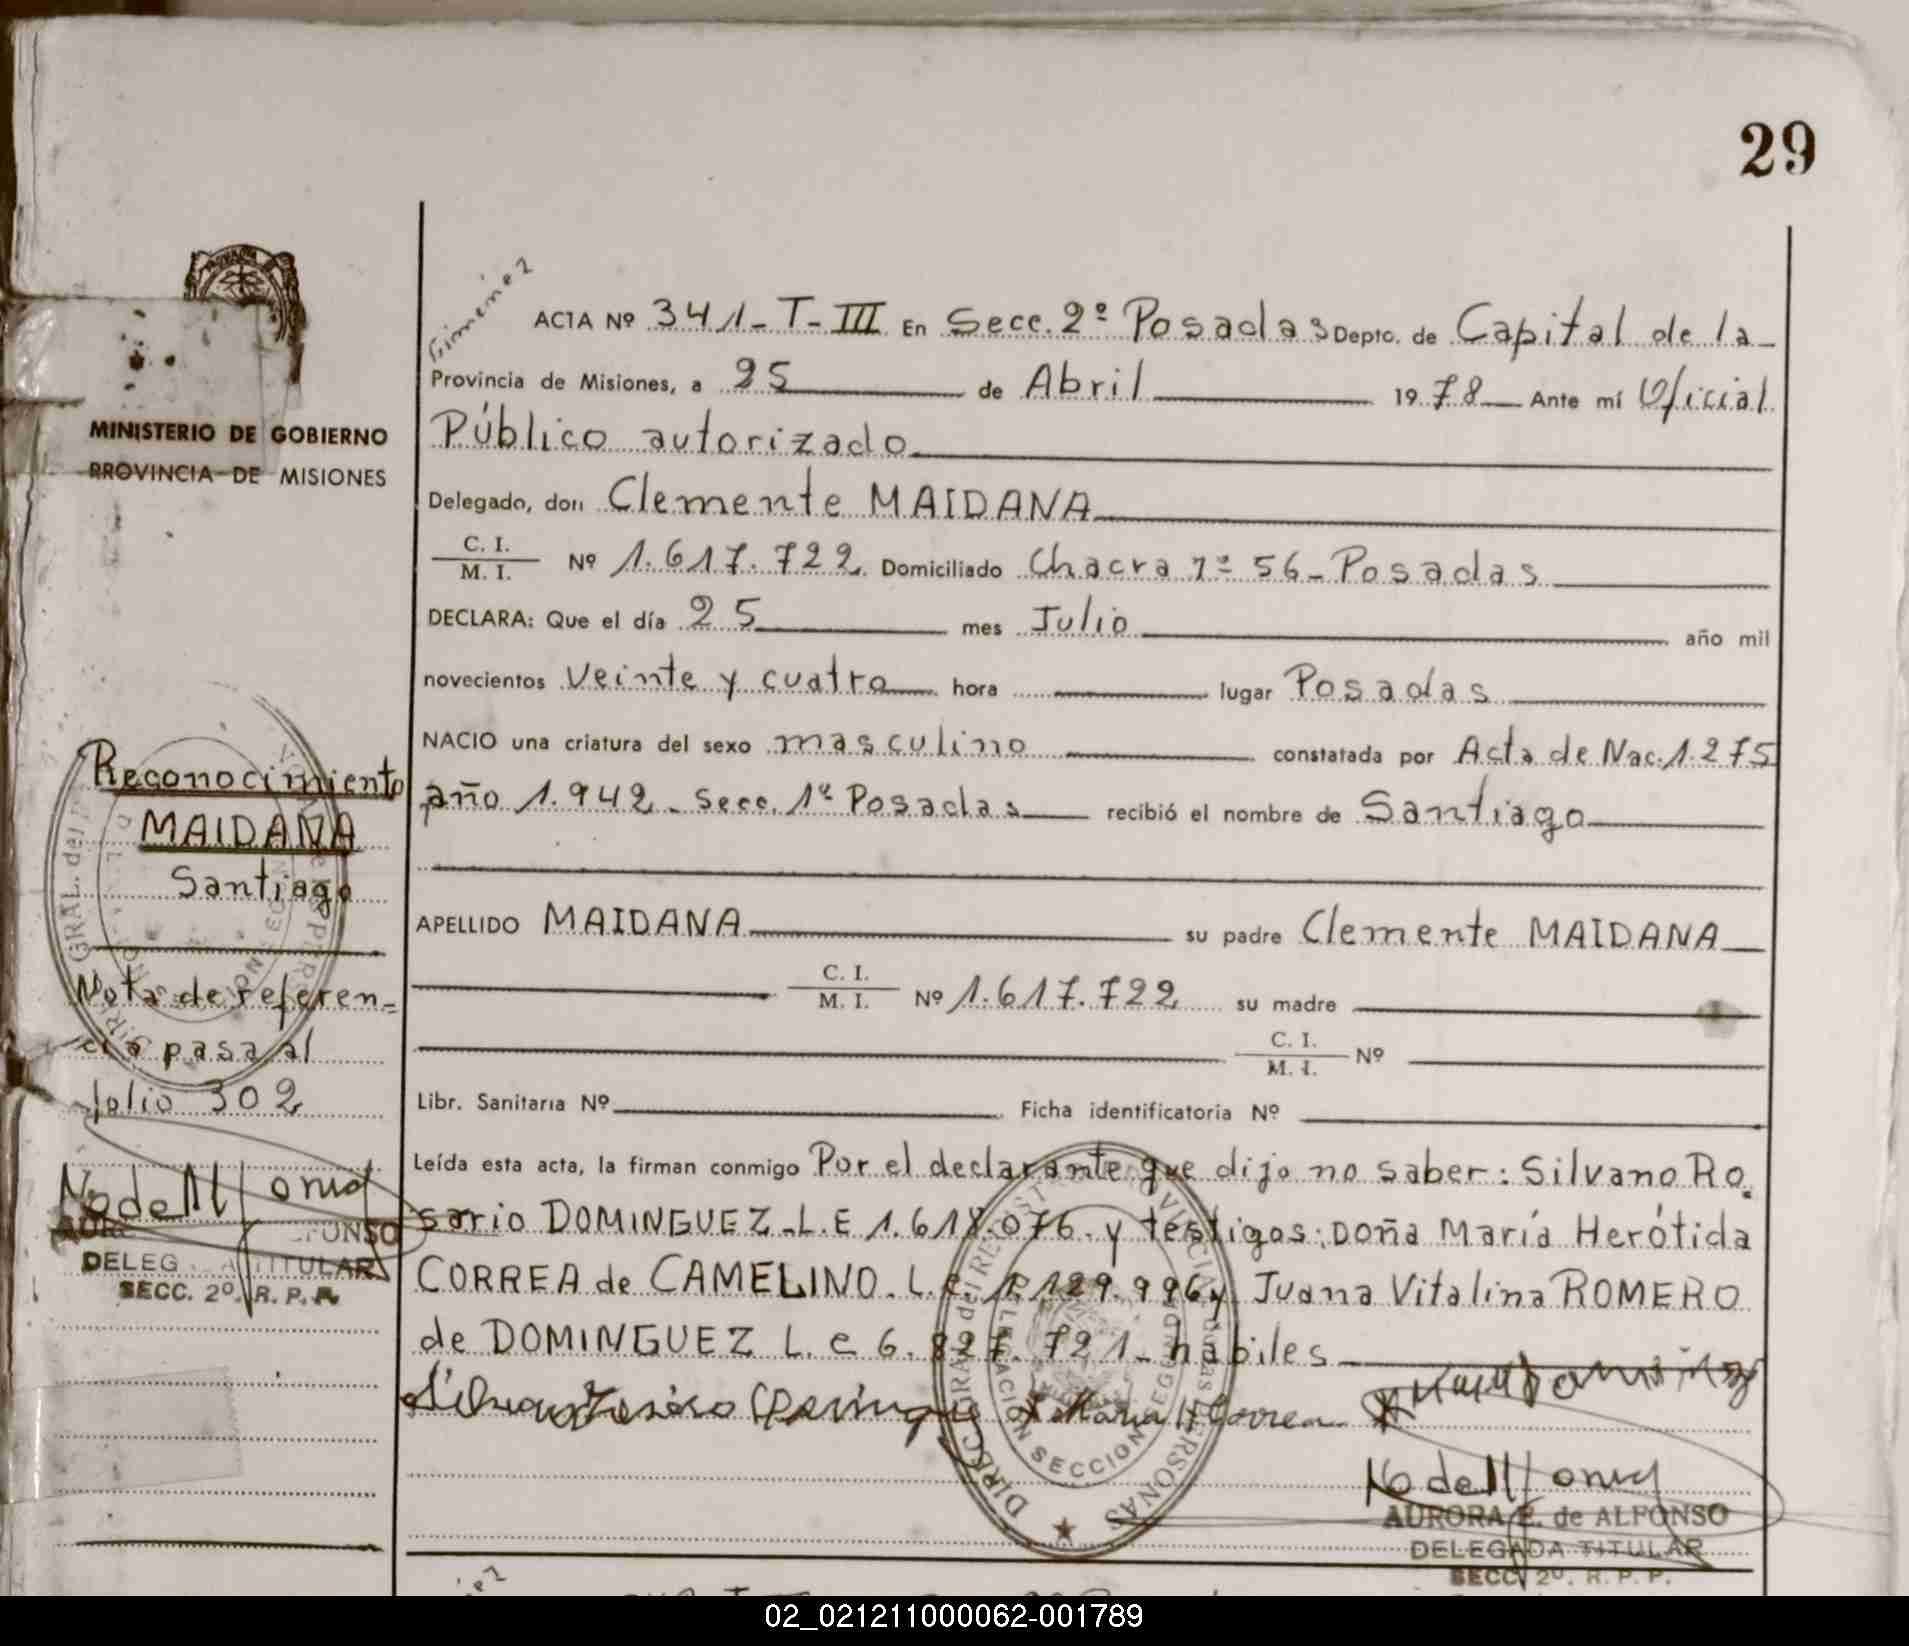 29
Gimenez
ACTA Nº 341-T-III En Secc. 2º Posadas Depto. de Capital de la
Provincia de Misiones, a 25 de Abril 1978 Ante mí Oficial
Público autorizado
Delegado, don Clemente MAIDANA
C. I.
M. I. Nº 1.617.722 Domiciliado Chacra nº 56-Posadas
DECLARA: Que el día 25 mes Julio año mil
novecientos veinte y cuatro hora lugar Posadas
NACIO una criatura del sexo masculino constatada por Acta de Nac. 1.275
año 1.942 - Secc. 1ª Posadas recibió el nombre de Santiago
APELLIDO MAIDANA su padre Clemente MAIDANA
C. I.
M. I. Nº 1.617.722 su madre
C. I.
M. I. Nº
Libr. Sanitaria Nº Ficha identificatoria Nº
Leída esta acta, la firman conmigo Por el declarante que dijo no saber: Silvano Ro.
sario DOMINGUEZ-L.E 1.618.076. y testigos: Doña María Herótida
CORREA de CAMELINO. L.C. 129.996 y Juana Vitalina ROMERO
de DOMINGUEZ L. C 6.827.721 - hábiles
Maria H Correa
AURORA E. de ALFONSO
DELEGADA TITULAR
SECC. 2º. R. P. P.
MINISTERIO DE GOBIERNO
PROVINCIA DE MISIONES
Reconocimiento
MAIDANA
Santiago
Nota de referen=
cia pasa al
folio 302
DELEG TITULAR
SECC. 2º. R. P. P.
02_021211000062-001789